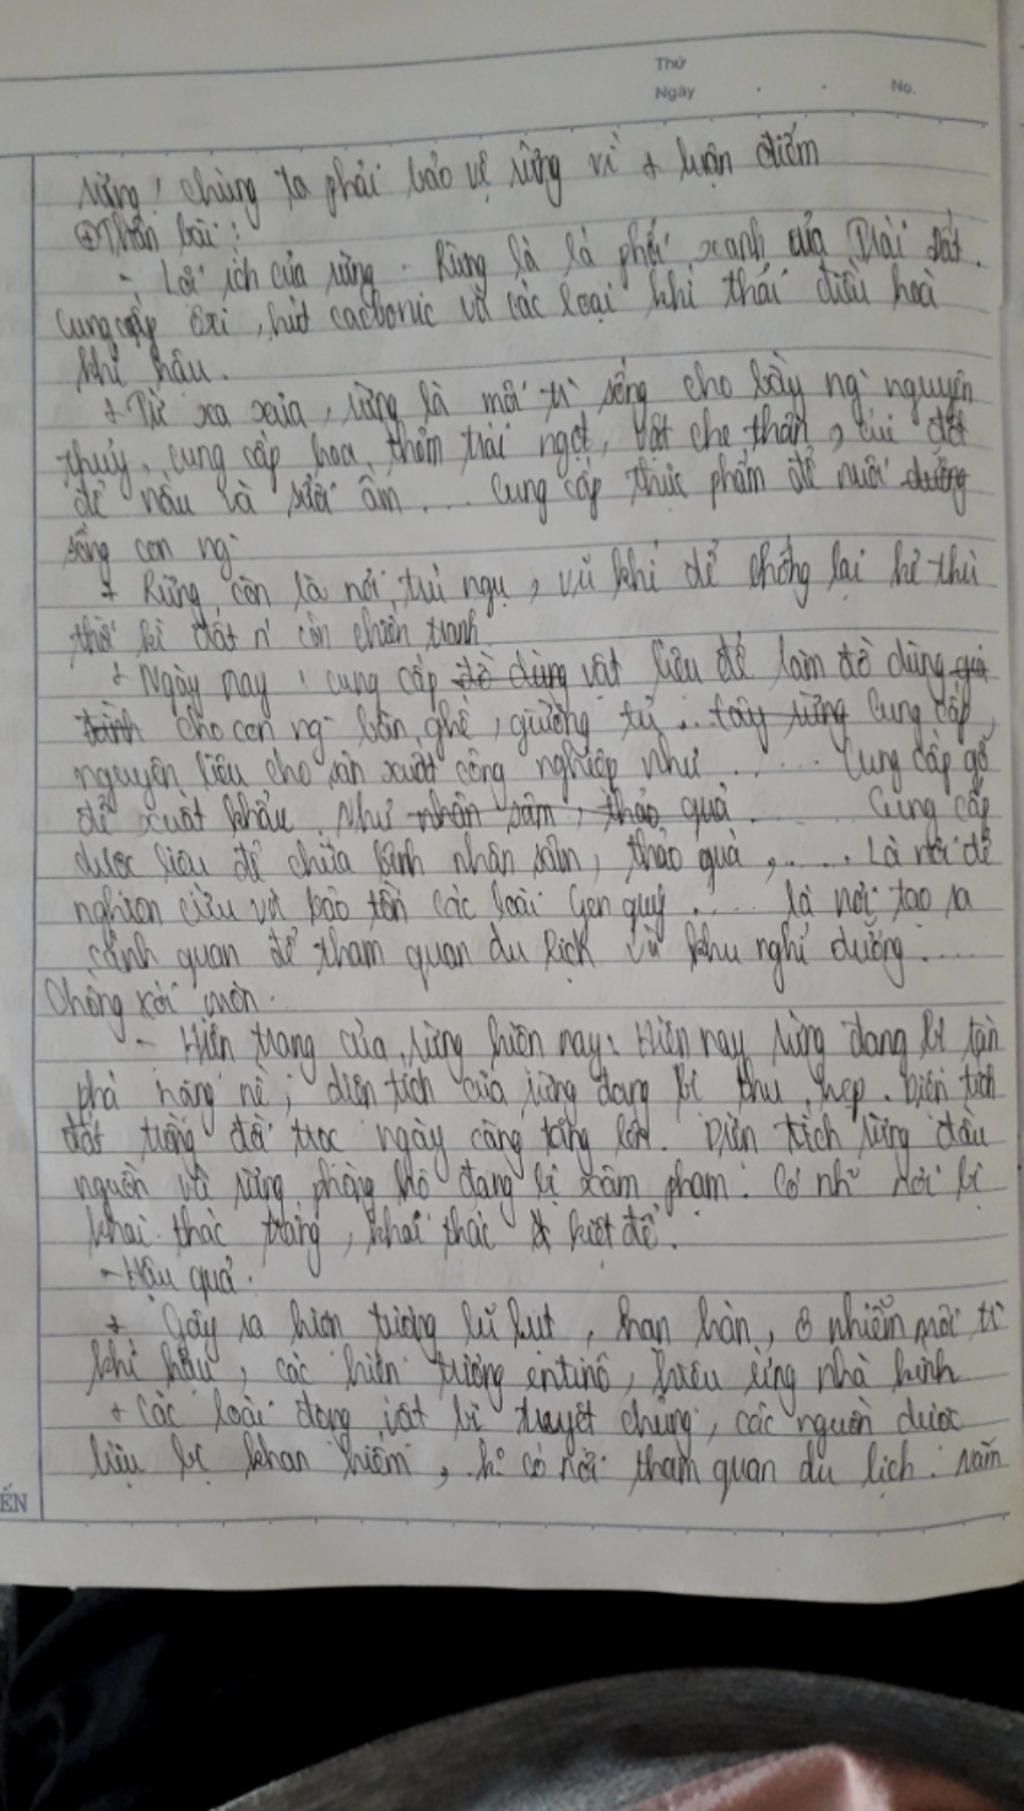 Thứ
Ngày No.
rừng! chúng ta phải bảo vệ rừng vì + luận điểm
⊕ Thân bài:
- Lợi ích của rừng - Rừng là lá phổi xanh của Trái đất.
Cung cấp ôxi, hút cacbonic và các loại khí thải điều hoà
khí hậu.
+ Từ xa xưa, rừng là môi tr sống cho bầy ng nguyên
thuỷ, cung cấp hoa thơm trái ngọt, vật che thân, củi đốt
để nấu và sưởi ấm.... Cung cấp thực phẩm để nuôi dưỡng
sống con ng
+ Rừng còn là nơi trú ngụ, vũ khí để chống lại kẻ thù
thời kì đất n còn chiến tranh
+ Ngày nay: cung cấp đồ dùng vật liệu để làm đồ dùng gia
đình cho con ng bàn, ghế, giường tủ... Cung cấp
nguyên liệu cho sản xuất công nghiệp như ...... Cung cấp gỗ
để xuất khẩu. Như nhân sâm, thảo quả ...... Cung cấp
dược liệu để chữa bệnh nhân sâm, thảo quả, ..... Là nơi để
nghiên cứu và bảo tồn các loài gen quý ..... là nơi tạo ra
cảnh quan để tham quan du lịch và khu nghỉ dưỡng ....
Chống xói mòn.
- Hiện trạng của rừng hiện nay: Hiện nay rừng đang bị tàn
phá nặng nề; diện tích của rừng đang bị thu hẹp. Diện tích
đất trống đồi trọc ngày càng tăng lên. Diện tích rừng đầu
nguồn và rừng phòng hộ đang bị xâm phạm. Có nh~ nơi bị
khai thác trắng, khai thác kiệt để.
- Hậu quả.
+ Gây ra hiện tượng lũ lụt, hạn hán, ô nhiễm môi tr
khí hậu, các hiện tượng entinô, hiệu ứng nhà kính
+ Các loài động vật bị tuyệt chủng, các nguồn dược
liệu bị khan hiếm, k° có nơi tham quan du lịch. Năm
ẾN